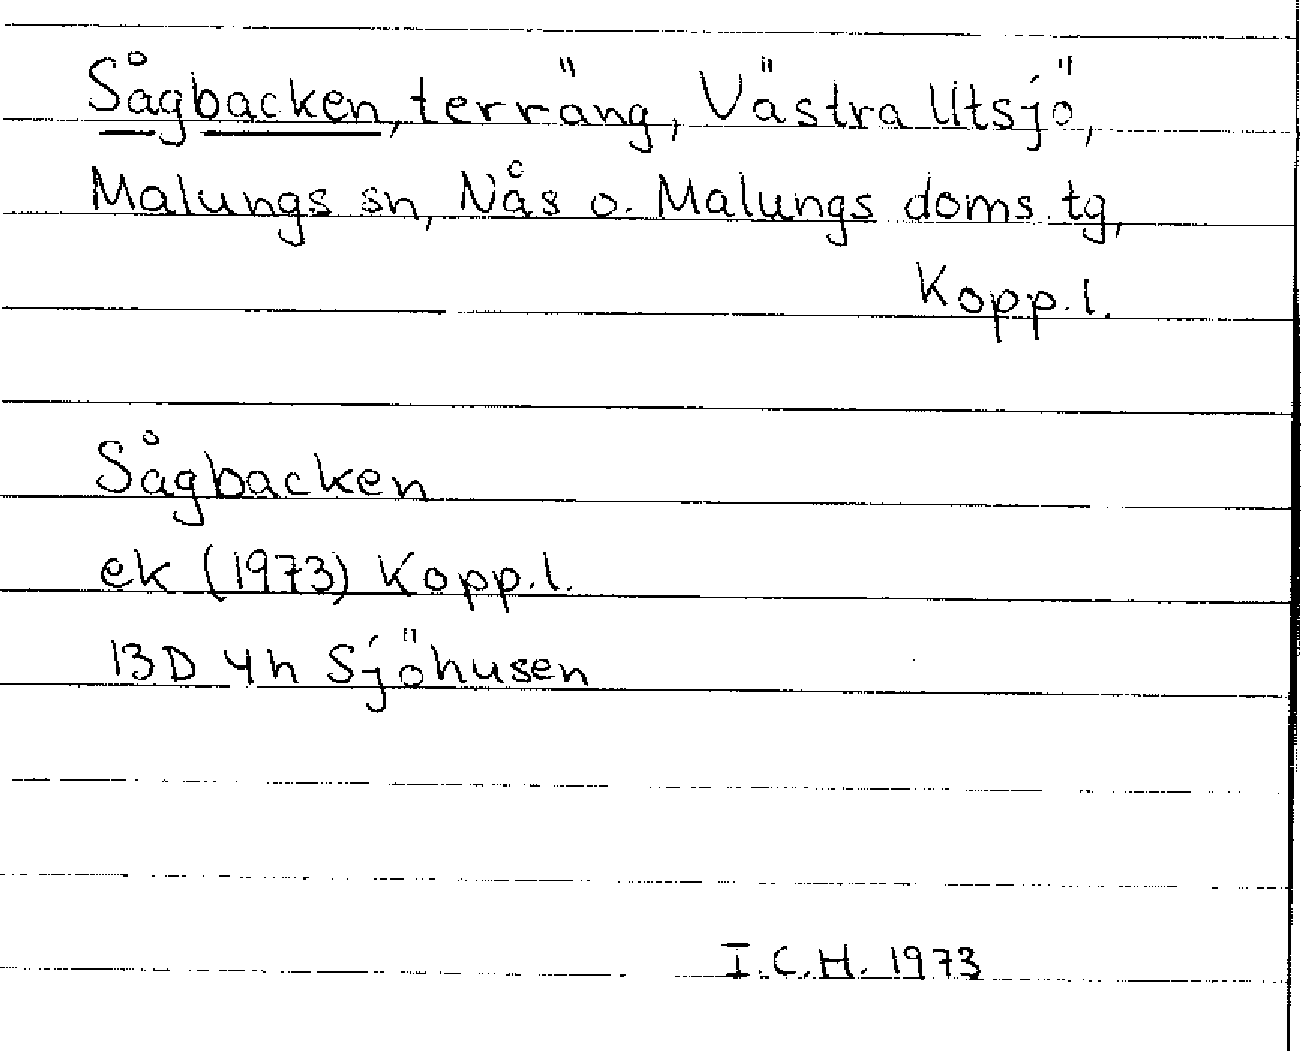 Sågbacken, terräng, Västra Utsjö,
Malungs sn, Nås o. Malungs doms. tg,
Kopp. l.
Sågbacken
ek (1973) Kopp. l.
13D 4h Sjöhusen
I.C.H. 1973